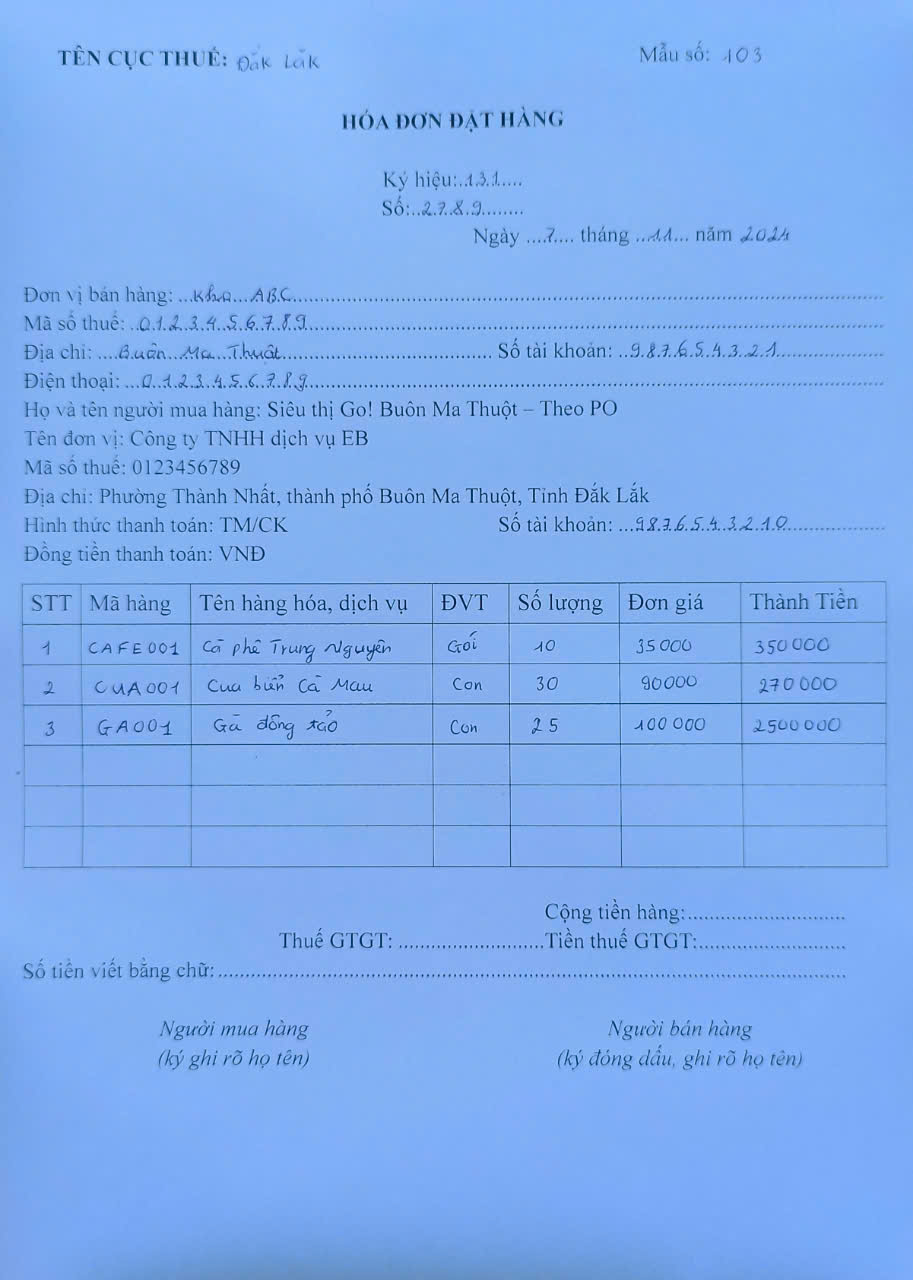 TÊN CỤC THUẾ: Đắk Lắk Mẫu số: 103
HÓA ĐƠN ĐẶT HÀNG
Ký hiệu:..131....
Số:..2789........
Ngày ....7.... tháng ...11... năm 2024
Đơn vị bán hàng: ...Kho...ABC...
Mã số thuế: ..0123456789...
Địa chỉ: ....Buôn...Ma...Thuột... Số tài khoản: ..987654321...
Điện thoại: ...0123456789...
Họ và tên người mua hàng: Siêu thị Go! Buôn Ma Thuột – Theo PO
Tên đơn vị: Công ty TNHH dịch vụ EB
Mã số thuế: 0123456789
Địa chỉ: Phường Thành Nhất, thành phố Buôn Ma Thuột, Tỉnh Đắk Lắk
Hình thức thanh toán: TM/CK Số tài khoản: ...9876543210...
Đồng tiền thanh toán: VNĐ
STT Mã hàng Tên hàng hóa, dịch vụ ĐVT Số lượng Đơn giá Thành Tiền
1 CAFE001 Cà phê Trung Nguyên Gói 10 35000 350000
2 CUA001 Cua biển Cà Mau Con 30 90000 270000
3 GA001 Gà đông tảo Con 25 100000 2500000
Cộng tiền hàng:...
Thuế GTGT: ...Tiền thuế GTGT:...
Số tiền viết bằng chữ:...
Người mua hàng Người bán hàng
(ký ghi rõ họ tên) (ký đóng dấu, ghi rõ họ tên)